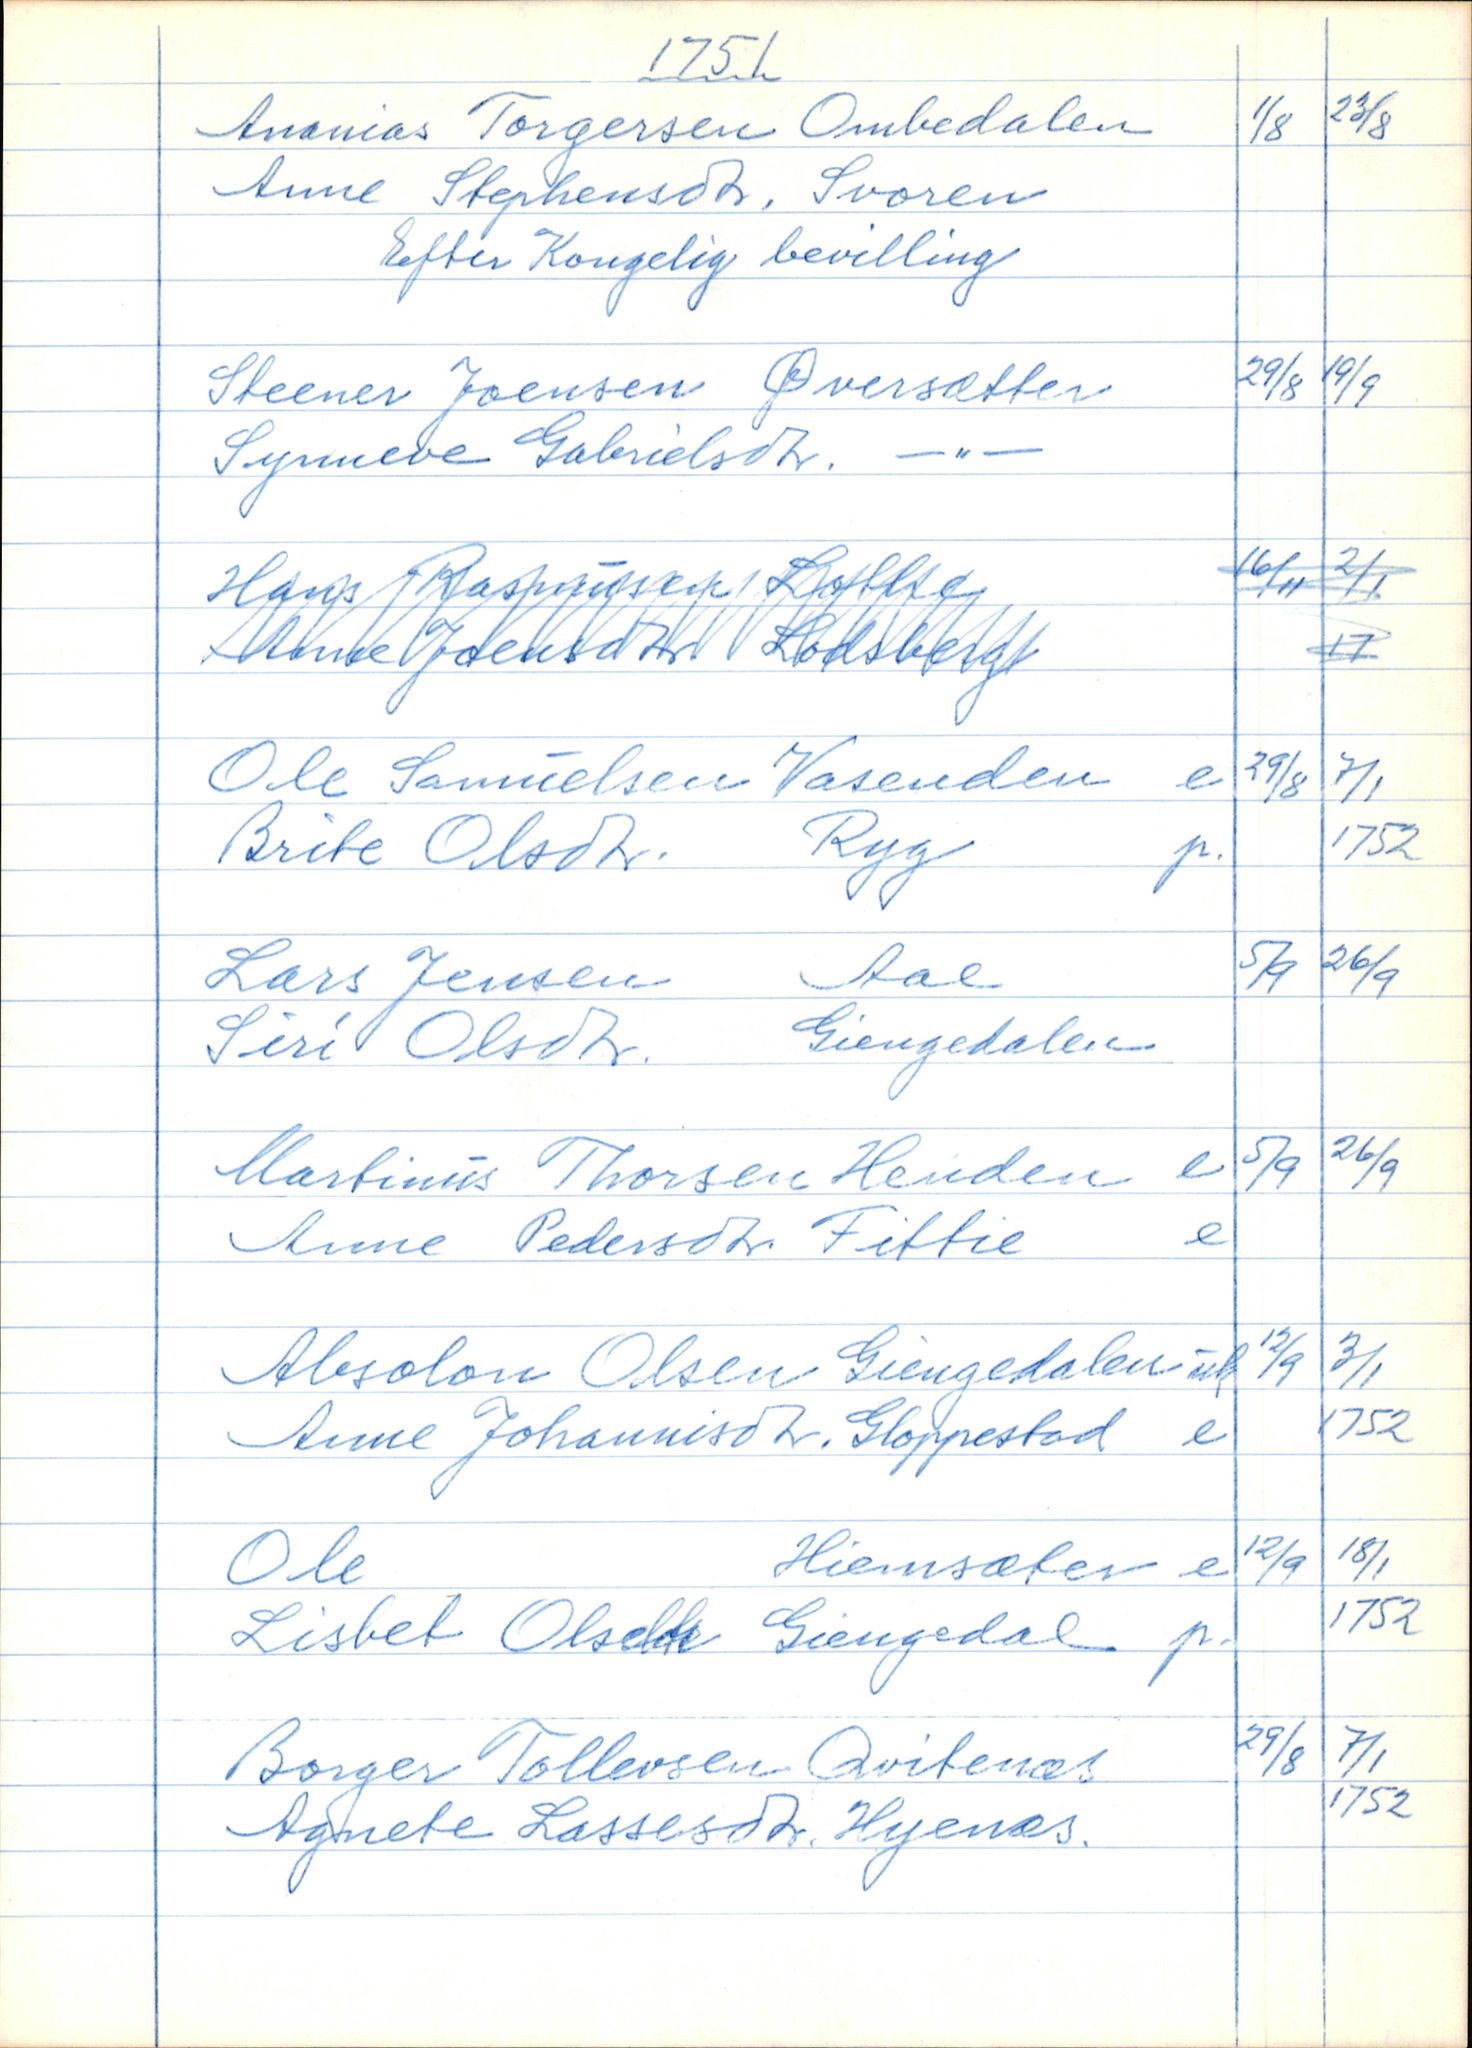 1751
Ananias Torgersen Ombedalen 1/8 23/8
Anne Stephensdtr. Svoren
Efter Kongelig bevilling
Steener Joensen Øversætter 29/8 19/9
Synneve Gabrielsdtr. —"—
Hans Rasmusen 16/11 2/1
Anne Joensdtr Lodsberg 17
Ole Samuelsen Vasenden e 29/8 7/1
Brite Olsdtr. Ryg p. 1752
Lars Jensen Aae 5/9 26/9
Siri Olsdtr. Giengedalen
Martinus Thorsen Henden e 5/9 26/9
Anne Pedersdtr. Fittie e
Absolon Olsen Giengedalen uk 12/9 3/1
Anne Johannisdtr. Gloppestad e 1752
Ole Hiemsæter e 12/9 18/1
Lisbet Olsdtr Giengedal p. 1752
Borger Tollevsen Qvitenæs 29/8 7/1
Agnete Lassesdtr. Hyenæs. 1752